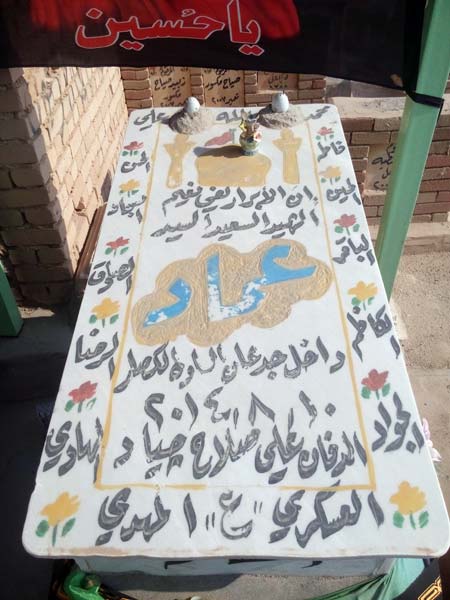 ياحسين
محمد الله علي
فاطمة
الحسن
الحسين
السجاد
الباقر
الصادق
الكاظم
الرضا
الجواد
الهادي
العسكري "ع" المهدي
إن الأبرار لفي نعيم
الشهيد السعيد السيد
عماد
داخل جدعان السادة الكصار
٢٠١٤ ٨ ١٠
الدفان علي صلاح صياد